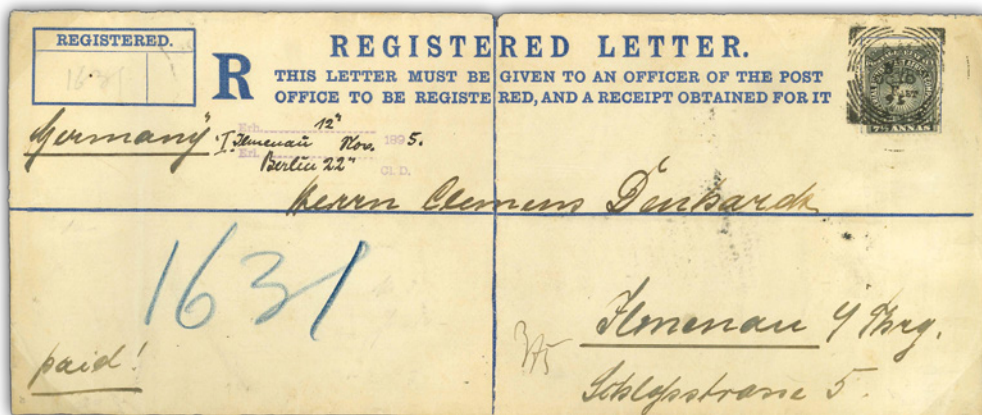 REGISTERED.
1631
R
REGISTERED LETTER.
THIS LETTER MUST BE GIVEN TO AN OFFICER OF THE POST
OFFICE TO BE REGISTERED, AND A RECEIPT OBTAINED FOR IT
7½ ANNAS
Germany
Erh. 12"
I. Ilmenau Nov. 1895.
Erl.
Berlin 22"
Cl. D.
Herrn Clemens Denhardt
1631
Ilmenau i/Thrg.
Schlossstrasse 5.
paid!